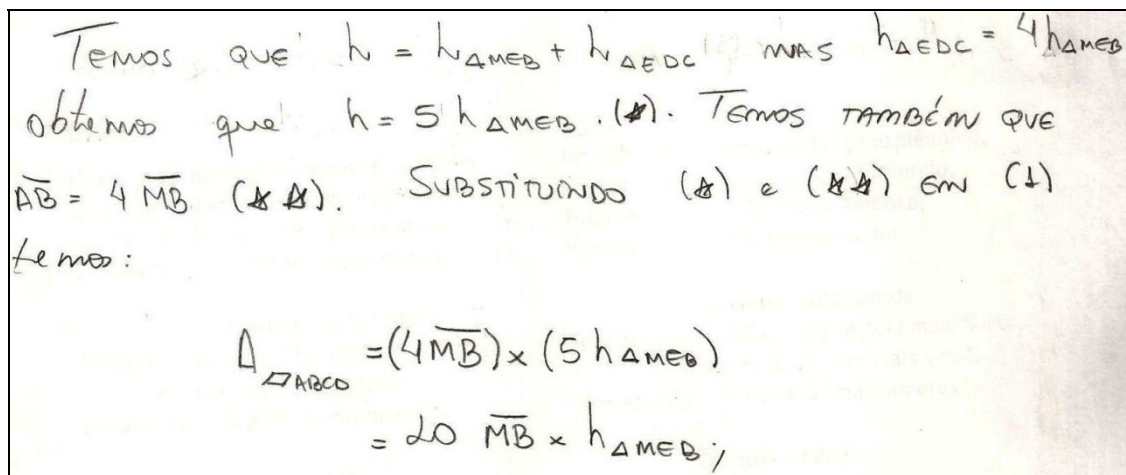 Temos que h = h△MEB + h△EDC mas h△EDC = 4h△MEB
obtemos que h = 5 h△MEB. (☆). Temos também que
A̅B̅ = 4 M̅B̅ (☆☆). Substituindo (☆) e (☆☆) em (1)
temos:
A▱ABCD = (4M̅B̅) × (5 h△MEB)
= 20 M̅B̅ × h△MEB;